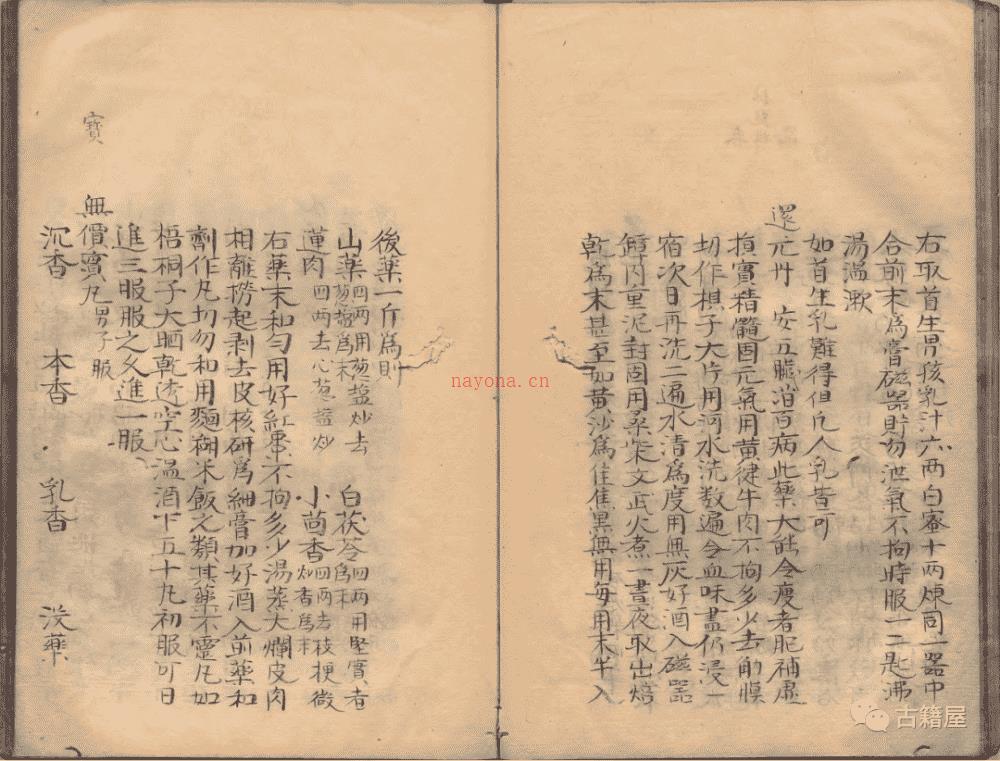 右取首生男孩乳汁六两白蜜十两煉同一器中
合前末為膏磁器貯勿泄氣不拘時服一二匙沸
湯漱
如首生乳難得但凡人乳皆可
還元丹 安五臟消百病此藥大能令瘦者肥補虛
損實精髓固元氣用黄犍牛肉不拘多少去筋膜
切作棋子大片用河水洗数遍令血味盡仍浸一
宿次日再洗二遍水清為度用無灰好酒入磁器
罈内重泥封固用桑柴文武火煮一晝夜取出焙
乾為末甚至如黄沙為佳焦黑無用每用末牛入
後藥一斤為則
山藥四两用葱鹽炒去葱鹽為末 白茯苓四两用堅實者為末
蓮肉四两去心葱鹽炒 小茴香四两去枝梗微炒香為末
右藥末和勻用好紅棗不拘多少湯蒸大爛皮肉
相離撈起剥去皮核研為細膏加好酒入前藥和
劑作丸切勿和用麵糊米飯之類其藥不靈丸如
梧桐子大晒乾透空心温酒下五十丸初服可日
進三服服之久進一服
無價寶丸男子服
沉香 木香 乳香 没藥
寶
nayona.cn
古籍屋